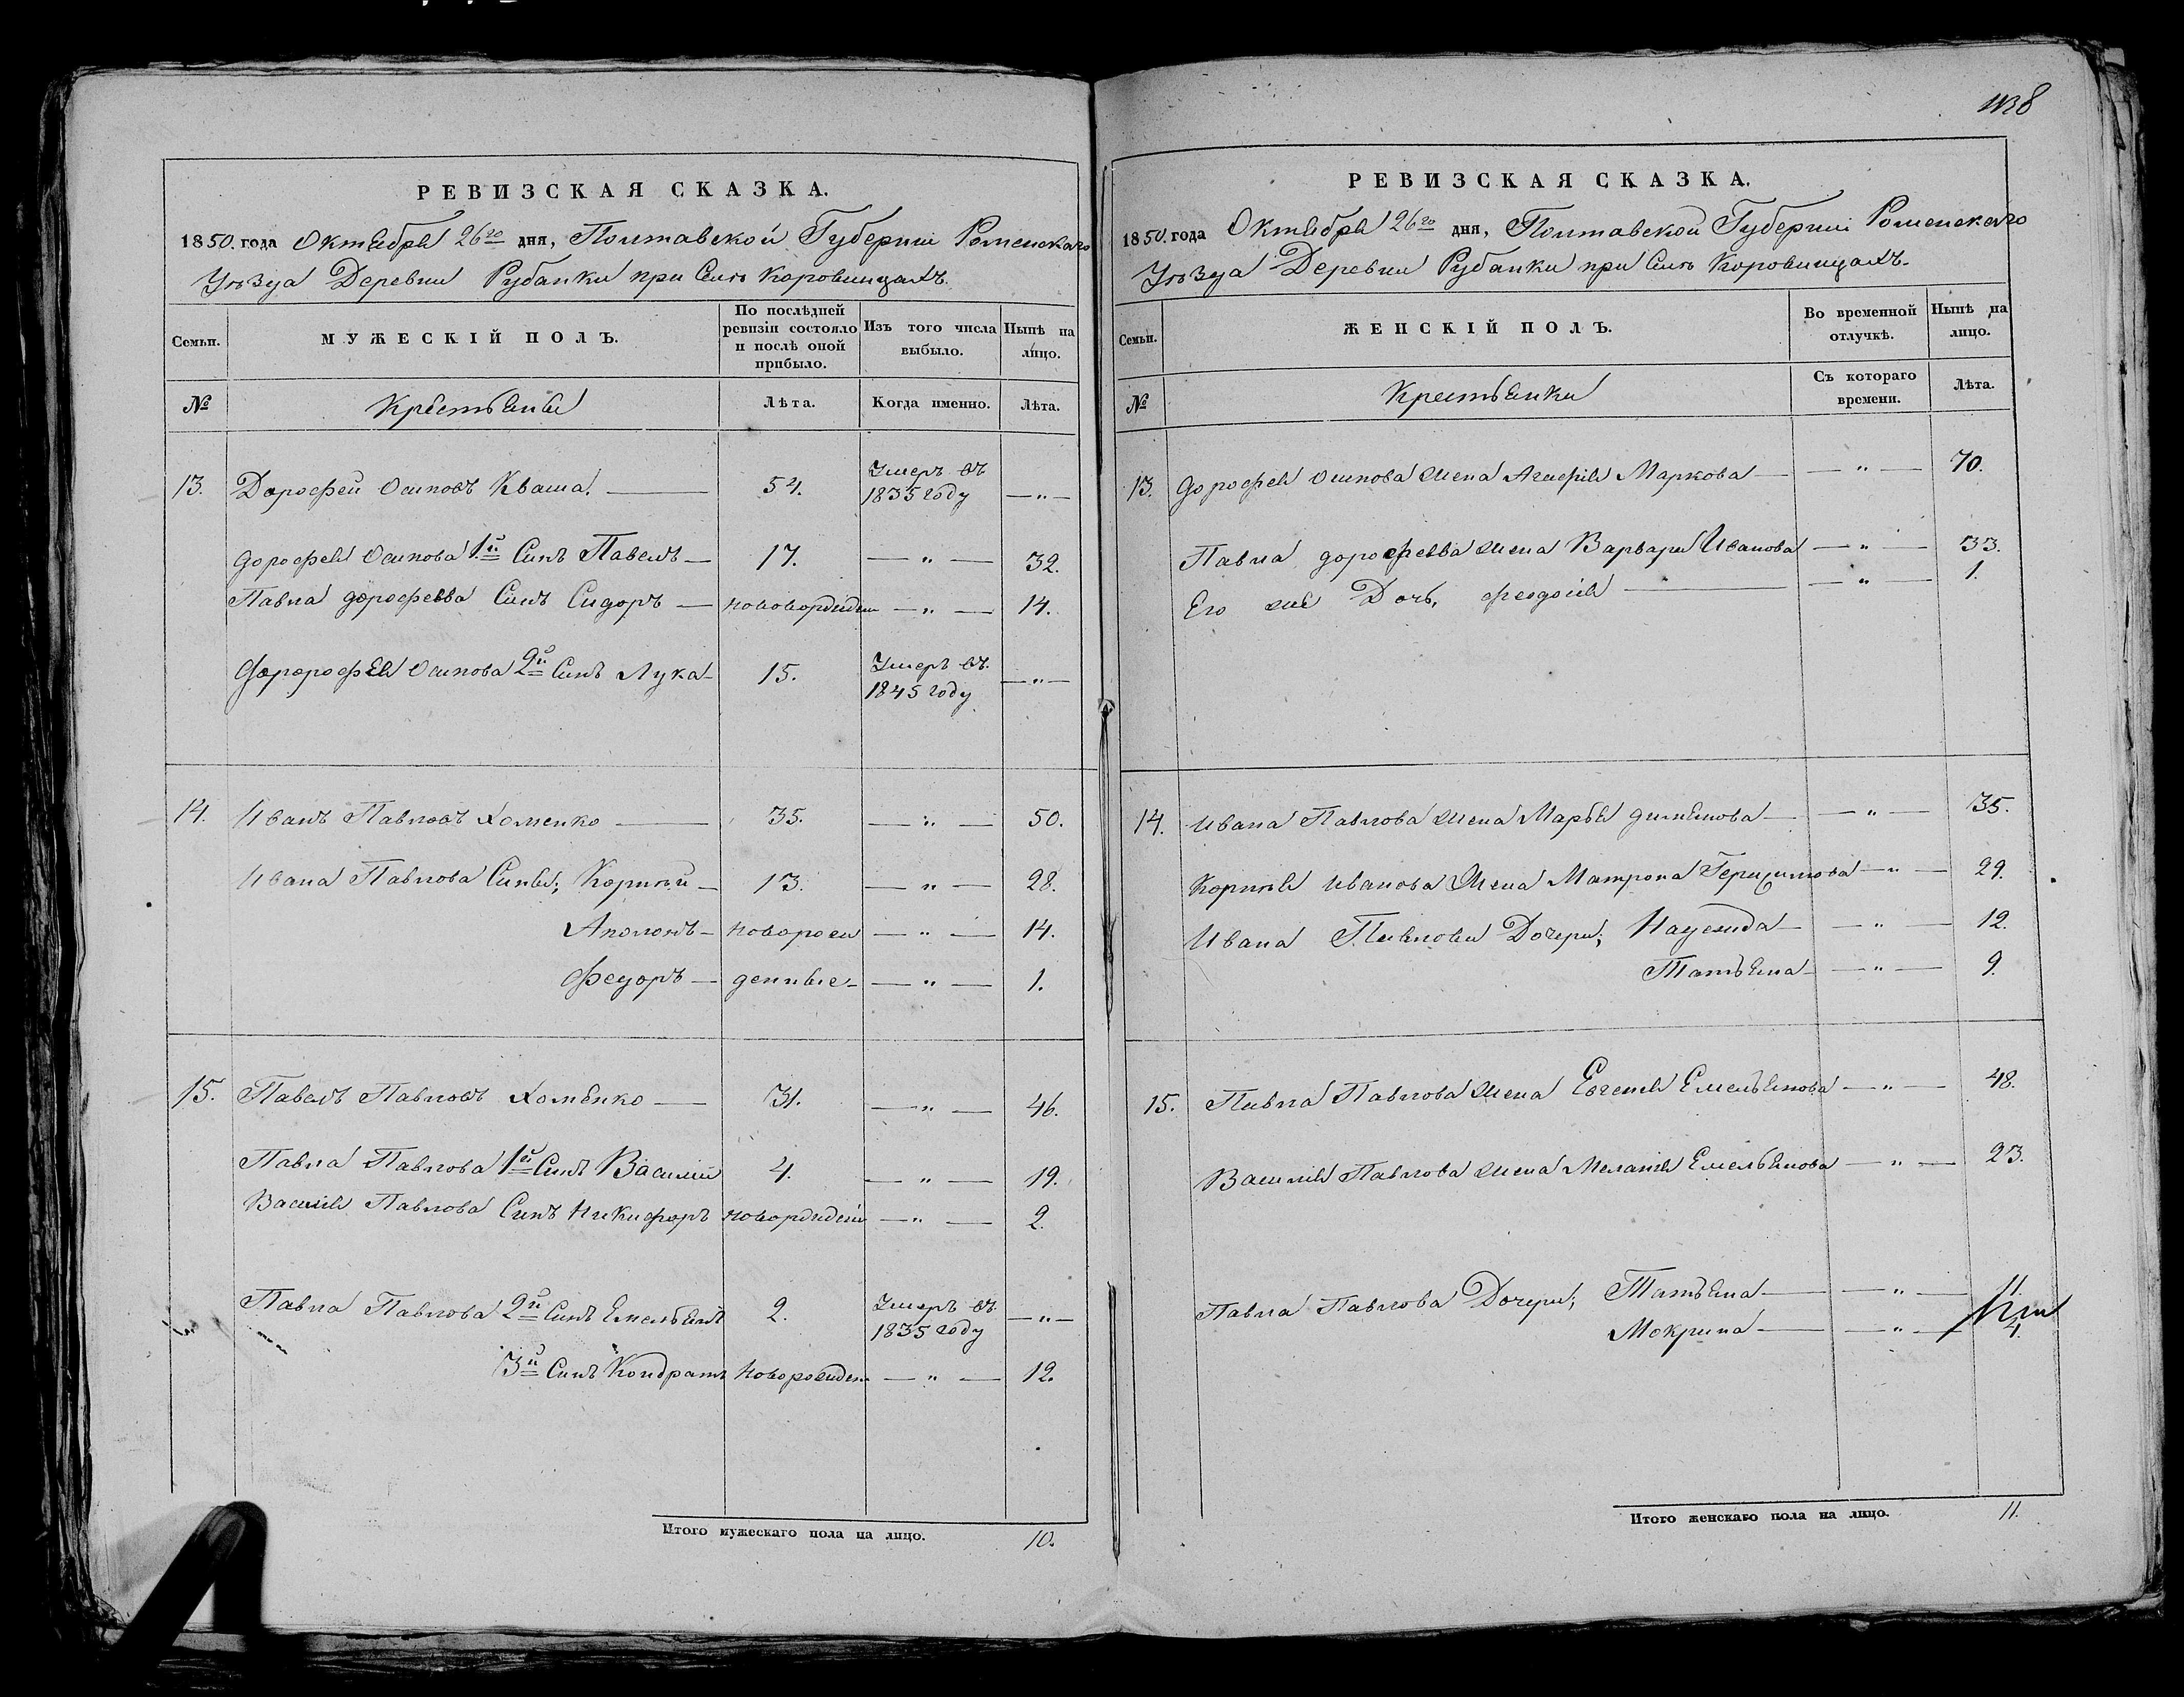 РЕВИЗСКАЯ СКАЗКА.
1850. года Октября 26го дня, Полтавской Губернии Роменскаго
Уѣзда Деревни Рубанки при Селѣ Коровинцахъ.
Семьи. МУЖЕСКІЙ ПОЛЪ. По послѣдней ревизіи состояло и послѣ оной прибыло. Изъ того числа выбыло. Нынѣ на лицо.
№ Крестьяне Лѣта. Когда именно. Лѣта.
13. Дорофей Осиповъ Кваша. 54. Умеръ въ 1835 году — " —
Дорофея Осипова 1й Синъ Павелъ — 17. — " — 32.
Павла дорофеева Синъ Сидоръ — новорожден — " — 14.
Осипова 2й Синъ Лука — 15. Умеръ въ. 1845 году — " —
14. Иванъ Павловъ Хоменко — 35. — " — 50.
Ивана Павлова Сины; Корнѣй — 13. — " — 28.
Аполонъ — новорож — " — 14.
Федоръ — денные — — " — 1.
15. Павелъ Павловъ Хоменко — 31. — " — 46.
Павла Павлова 1й Синъ Василий 4. — " — 19.
Василія Павлова Синъ Никифоръ — " — 2.
Павла Павлова 2й Синъ Емельянъ 2. Умеръ въ. 1835 году — " —
3й Синъ Кондратъ новорожден — " — 12.
Итого мужескаго пола на лицо. 10.
РЕВИЗСКАЯ СКАЗКА.
1850. года Октября 26го дня, Полтавской Губерніи Роменскаго
Уѣзда Деревни Рубанки при Селѣ Коровинцахъ.
Семьи. ЖЕНСКІЙ ПОЛЪ. Во временной отлучкѣ. Нынѣ на лицо.
№ Крестьянки Съ котораго времени. Лѣта.
13. Дорофея Осипова жена Агафія Маркова — — " — 70.
Павла дорофеева жена Варвара Иванова — " — 33.
Его же Дочь, феодосія — — " — 1.
14. Ивана Павлова жена Марья — — " — 35.
Корнѣя Иванова жена Матрона Герасимова — " — 29.
Ивана Павлова Дочери; Надежда — — " — 12.
Татьяна — — " — 9.
15. Павла Павлова жена Евгенія Емельянова — " — 48.
Василія Павлова жена Меланія Емельянова — " — 23.
Павла Павлова Дочери; Татьяна — — " — 11.
Мокрина — — " — 4.
Итого женскаго пола на лицо. 11.